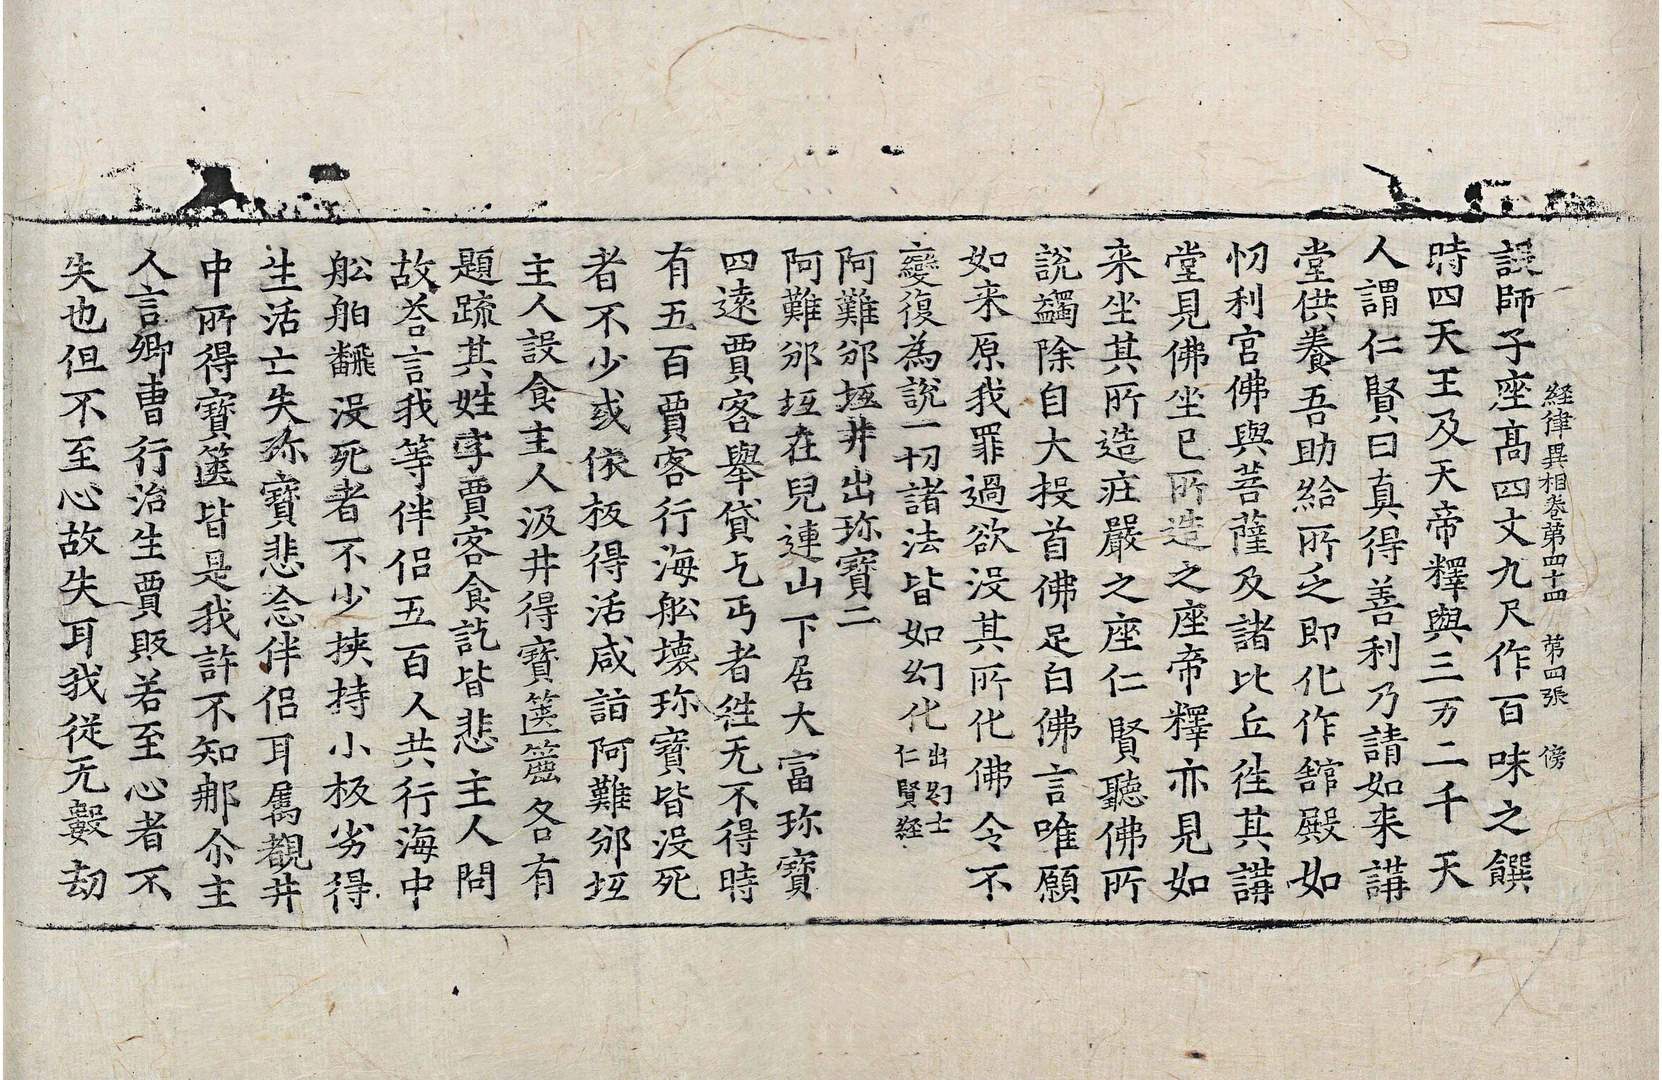 経律異相卷第四十四 第四張 傍
設師子座髙四丈九尺作百味之饌
時四天王及天帝釋與三万二千天
人謂仁賢曰真得善利乃請如来講
堂供養吾助給所乏即化作舘殿如
忉利宮佛與菩薩及諸比丘徃其講
堂見佛坐已所造之座帝釋亦見如
来坐其所造疘嚴之座仁賢聽佛所
說蠲除自大投首佛足白佛言唯願
如来原我罪過欲没其所化佛令不
變復為說一切諸法皆如幻化出幻士
仁賢経
阿難邠坻井出珎寶二
阿難邠坻在兒連山下居大富珎寶
四遠賈客舉貸乞丐者徃无不得時
有五百賈客行海舩壊珎寶皆没死
者不少或依板得活咸詣阿難邠坻
主人設食主人汲井得寶篋簏各有
題䟽其姓字賈客食訖皆悲主人問
故荅言我等伴侣五百人共行海中
舩舶飜没死者不少挾持小板劣得
生活亡失珎寶悲念伴侣耳属覩井
中所得寶篋皆是我許不知那尒主
人言卿曺行治生賈販若至心者不
失也但不至心故失耳我從无數劫